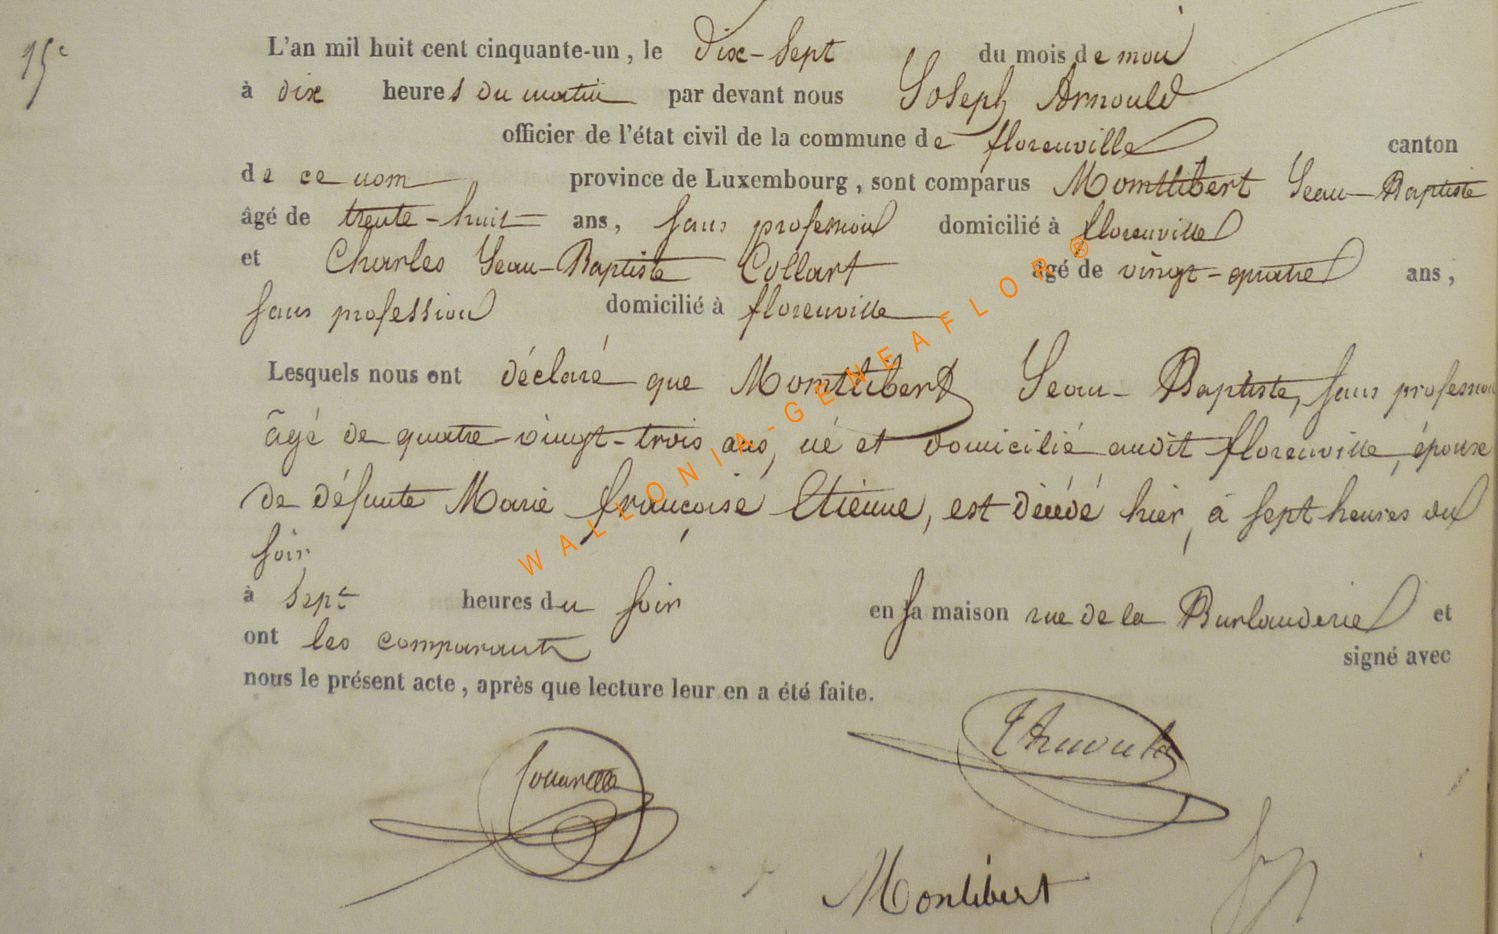 15e
L'an mil huit cent cinquante-un, le dix-sept du mois de mai
à dix heures du matin par devant nous Joseph Arnould
officier de l'état civil de la commune de florenville canton
de ce nom province de Luxembourg, sont comparus Montlibert Jean-Baptiste
âgé de trente-huit ans, sans profession domicilié à florenville
et Charles Jean-Baptiste Collart âgé de vingt-quatre ans,
sans profession domicilié à florenville
Lesquels nous ont déclaré que Montlibert Jean-Baptiste, sans profession
âgé de quatre-vingt-trois ans, né et domicilié audit florenville, époux
de défunte Marie françoise Etienne, est décédé hier, à sept heures du
soir
à sept heures du soir en sa maison rue de la Burlanderie et
ont les comparants signé avec
nous le présent acte, après que lecture leur en a été faite.
JArnould
Montlibert
WALLONIA-GENEAFLOR®